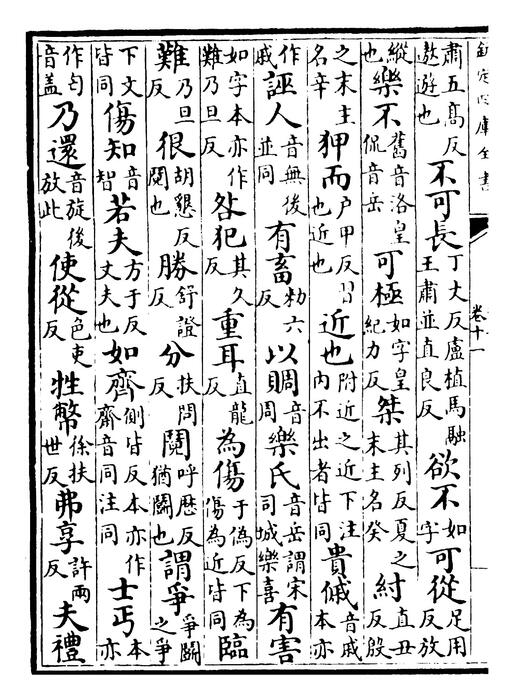 欽定四庫全書
卷十一
肅五髙反遨遊也不可長丁丈反盧植馬融王肅並直良反欲不如字可從足用反放
縱也樂不舊音洛皇侃音岳可極如字皇紀力反桀其列反夏之末主名癸紂直丑反殷
之末主名辛狎而户甲反習也近也近也附近之近下注内不出者皆同貴傶音戚本亦
作戚誣人音無後並同有畜勑六反以賙音周樂氏音岳謂宋司城樂喜有害
如字本亦作難乃旦反咎犯其久反重耳直龍反為傷于偽反下為傷為近皆同臨
難乃旦反很胡懇反鬩也勝舒證反分扶問反鬩呼歴反猶鬭也謂爭爭鬭之爭
下文皆同傷知音智若夫方于反丈夫也如齊側皆反本亦作齋音同注同士丐本亦
作匄音盖乃還音旋後放此使從色吏反牲幣徐扶世反弗享許兩反夫禮